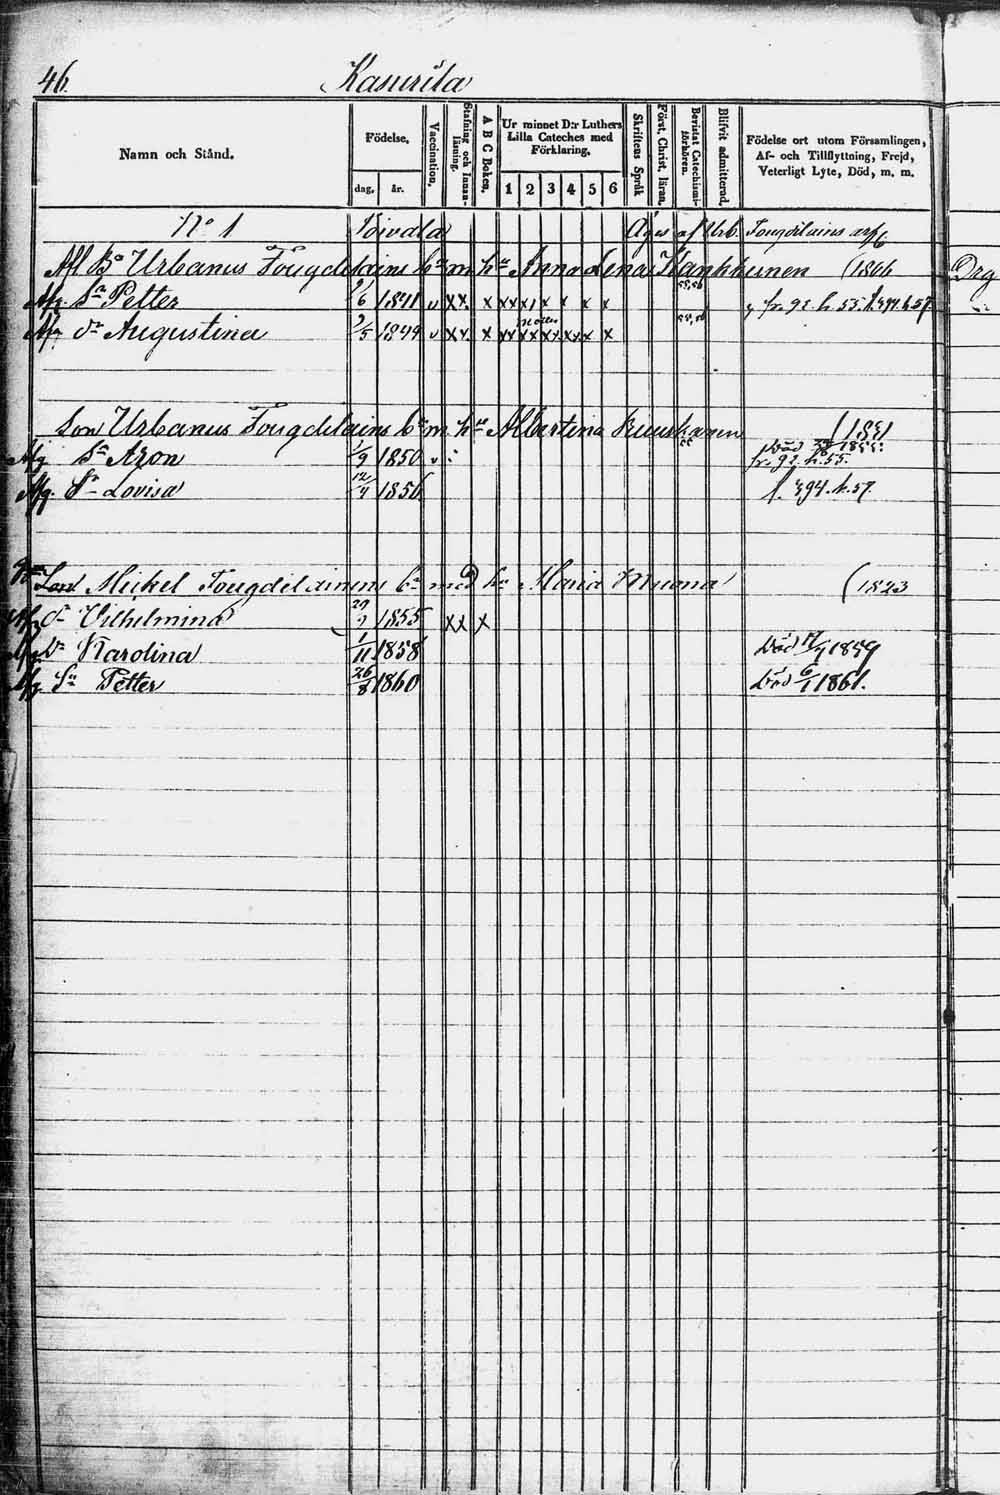 46. Kamrila
Namn och Stånd.
Födelse.
dag.
år.
Vaccination.
Stafning och Innanläsning.
A B C Boken.
Ur minnet D:r Luthers Lilla Cateches med Förklaring.
1 2 3 4 5 6
Skriftens Språk
Först. Christ. läran.
Bevistat Catechismiförhören.
Blifvit admitterad.
Födelse ort utom Församlingen, Af- och Tillflyttning, Frejd, Veterligt Lyte, Död, m. m.
No 1 Toivala Äges af Urb. Tougdilains arf.
Afl Bo Urbanus Tougdilains bn m hu Anna Lena Kankkunen (1806
Sn Petter 6 1841 v x x x x x x x x x x fr. 92. h. 53. f. 394. h. 57.
dr Augustina 5 1849 v x x x x x x x x x x x x
Son Urbanus Tougdilains bn m hu Albertina (1831
Sn Aron 1/9 1850 v Död 1855. fr. 92. h. 55.
Lovisa 12 1856 f. 394. h. 57.
Son Mickel Tougdilainens bn med hu Maria Muona (1823
dr Vilhelmina 29 1855 x x x
Dr Karolina 1/11 1858 Död 1859
Sn Petter 26/8 1860 Död 6/1 1861.